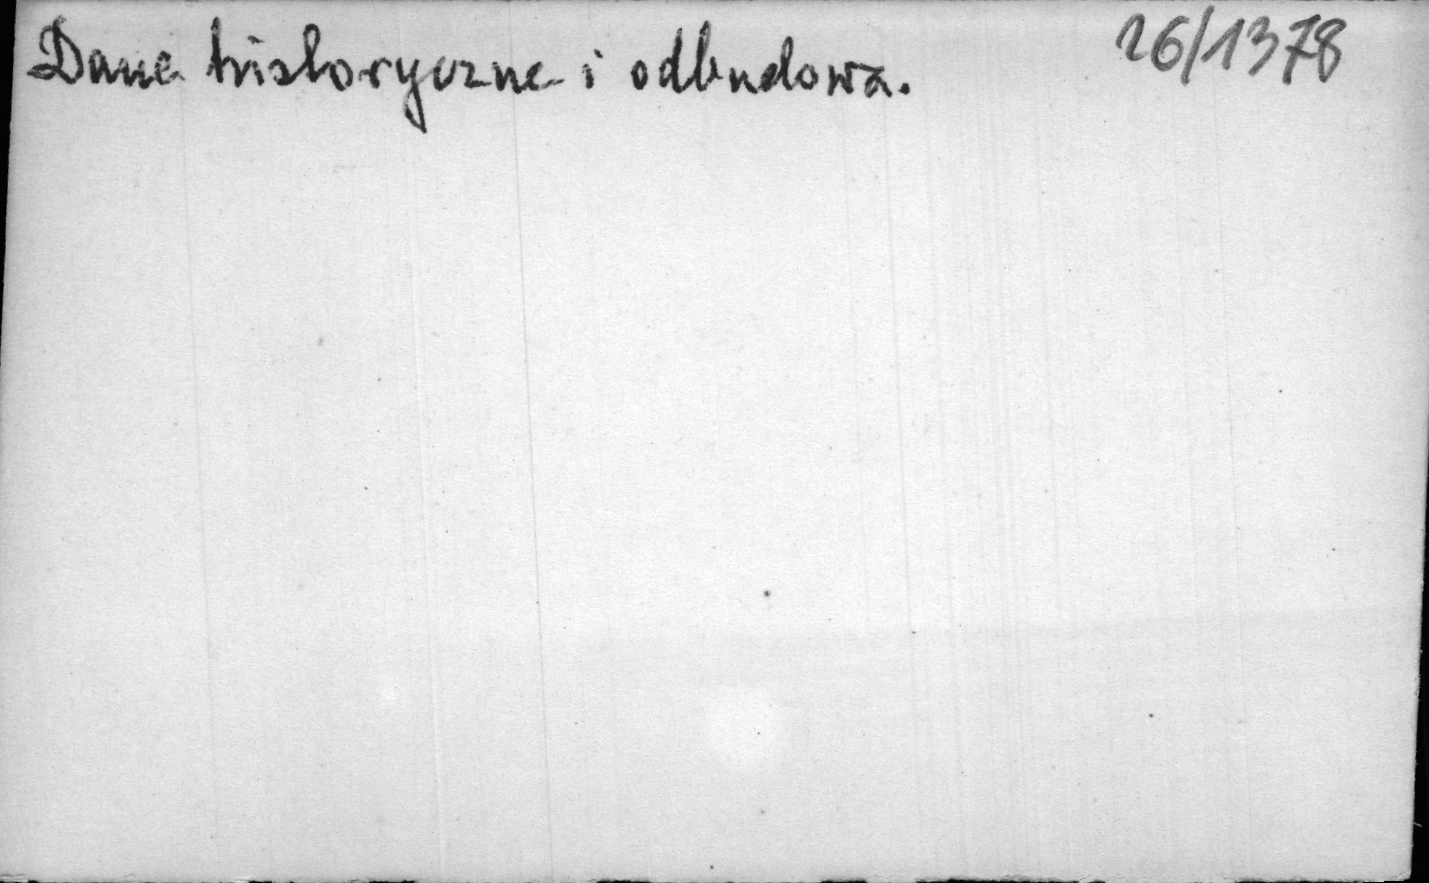 Dane historyczne i odbudowa. 26/1378